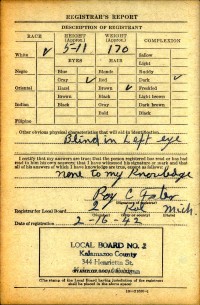 REGISTRAR'S REPORT
DESCRIPTION OF REGISTRANT
RACE HEIGHT (Approx.) WEIGHT (Approx.) COMPLEXION
5-11 170
White ✓ EYES HAIR Sallow
Light
Negro Blue Blonde Ruddy
Gray ✓ Red Dark ✓
Oriental Hazel Brown ✓ Freckled
Brown Black Light Brown
Indian Black Gray Dark brown
Bald Black
Filipino
Other obvious physical characteristics that will aid in identification
Blind in Left eye
I certify that my answers are true; that the person registered has read or has had
read to him his own answers; that I have witnessed his signature or mark and that
all of his answers of which I have knowledge are true, except as follows:
None to my Knowledge
Roy C.
Registrar for Local Board 2 Kal Mich.
Date of registration 2-16-42
LOCAL BOARD NO. 2
Kalamazoo County
344 Henrietta St.
(The stamp of the Local Board having jurisdiction of the registrant
shall be placed in the above space)